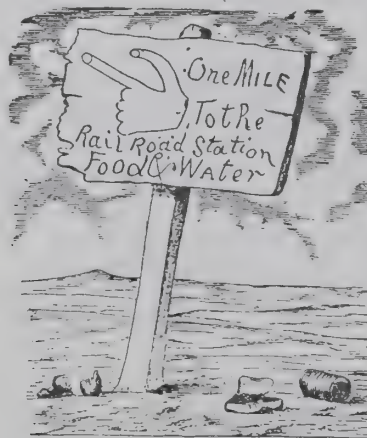 One MILE
To the
Rail Road Station
Food & Water